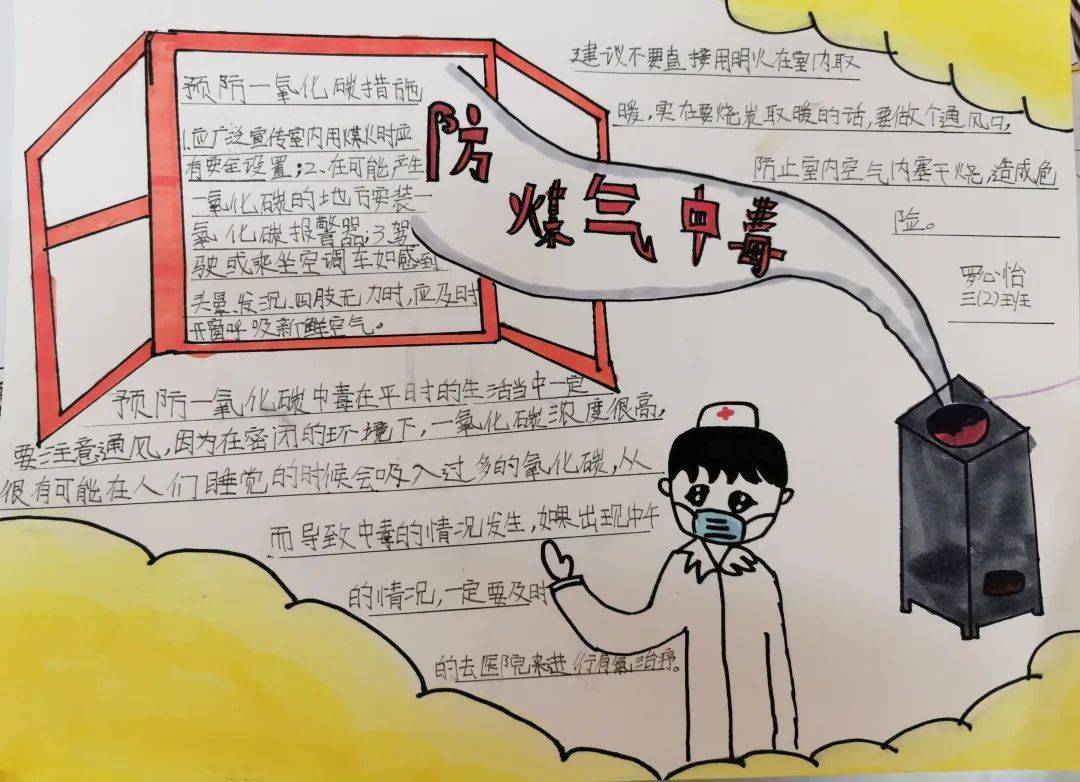 防
煤气中毒
预防一氧化碳措施
1.应广泛宣传室内用煤火时应
有安全设置;2、在可能产生
一氧化碳的地方安装一
氧化碳报警器;3驾
驶或乘坐空调车如感到
头晕、发沉、四肢无力时,应及时
开窗呼吸新鲜空气。
建议不要直接用明火在室内取
暖,实在要烧炭取暖的话,要做个通风口,
防止室内空气内塞干烧,造成危
险。
罗心怡
三(2)班
预防一氧化碳中毒在平时的生活当中一定
要注意通风,因为在密闭的环境下,一氧化碳浓度很高,
很有可能在人们睡觉的时候会吸入过多的氧化碳,从
而导致中毒的情况发生,如果出现中午
的情况,一定要及时
的去医院来进行有氧治疗。